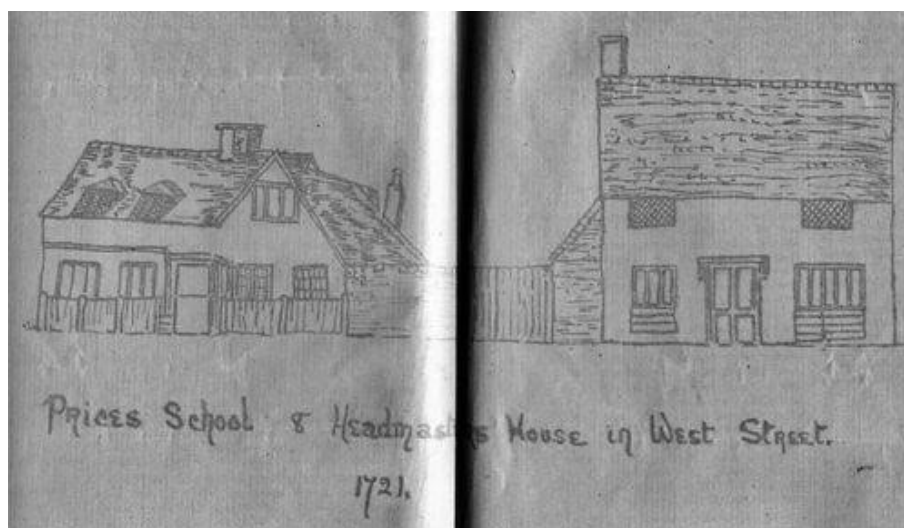 Prices School & Headmasters House in West Street.
1721.